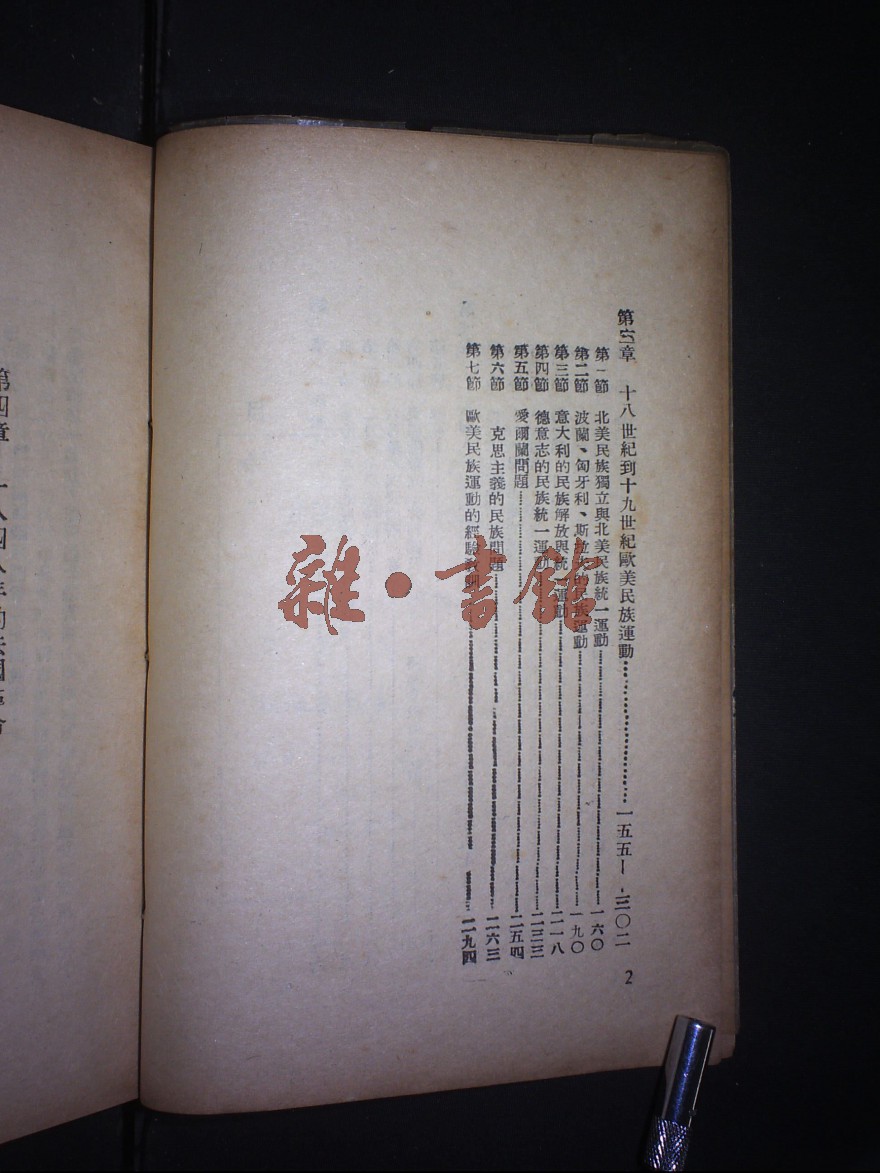 第六章 十八世紀到十九世紀歐美民族運動……一五五—三〇二
第一節 北美民族獨立與北美民族統一運動……一六〇
第二節 波蘭、匈牙利、斯拉夫的民族運動……一九〇
第三節 意大利的民族解放與統一運動……二一八
第四節 德意志的民族統一運動……二三三
第五節 愛爾蘭問題……二五四
第六節 克思主義的民族問題……二六三
第七節 歐美民族運動的經驗教訓……二九四
2
雜·書館
第四章 一八四八年的法國革命